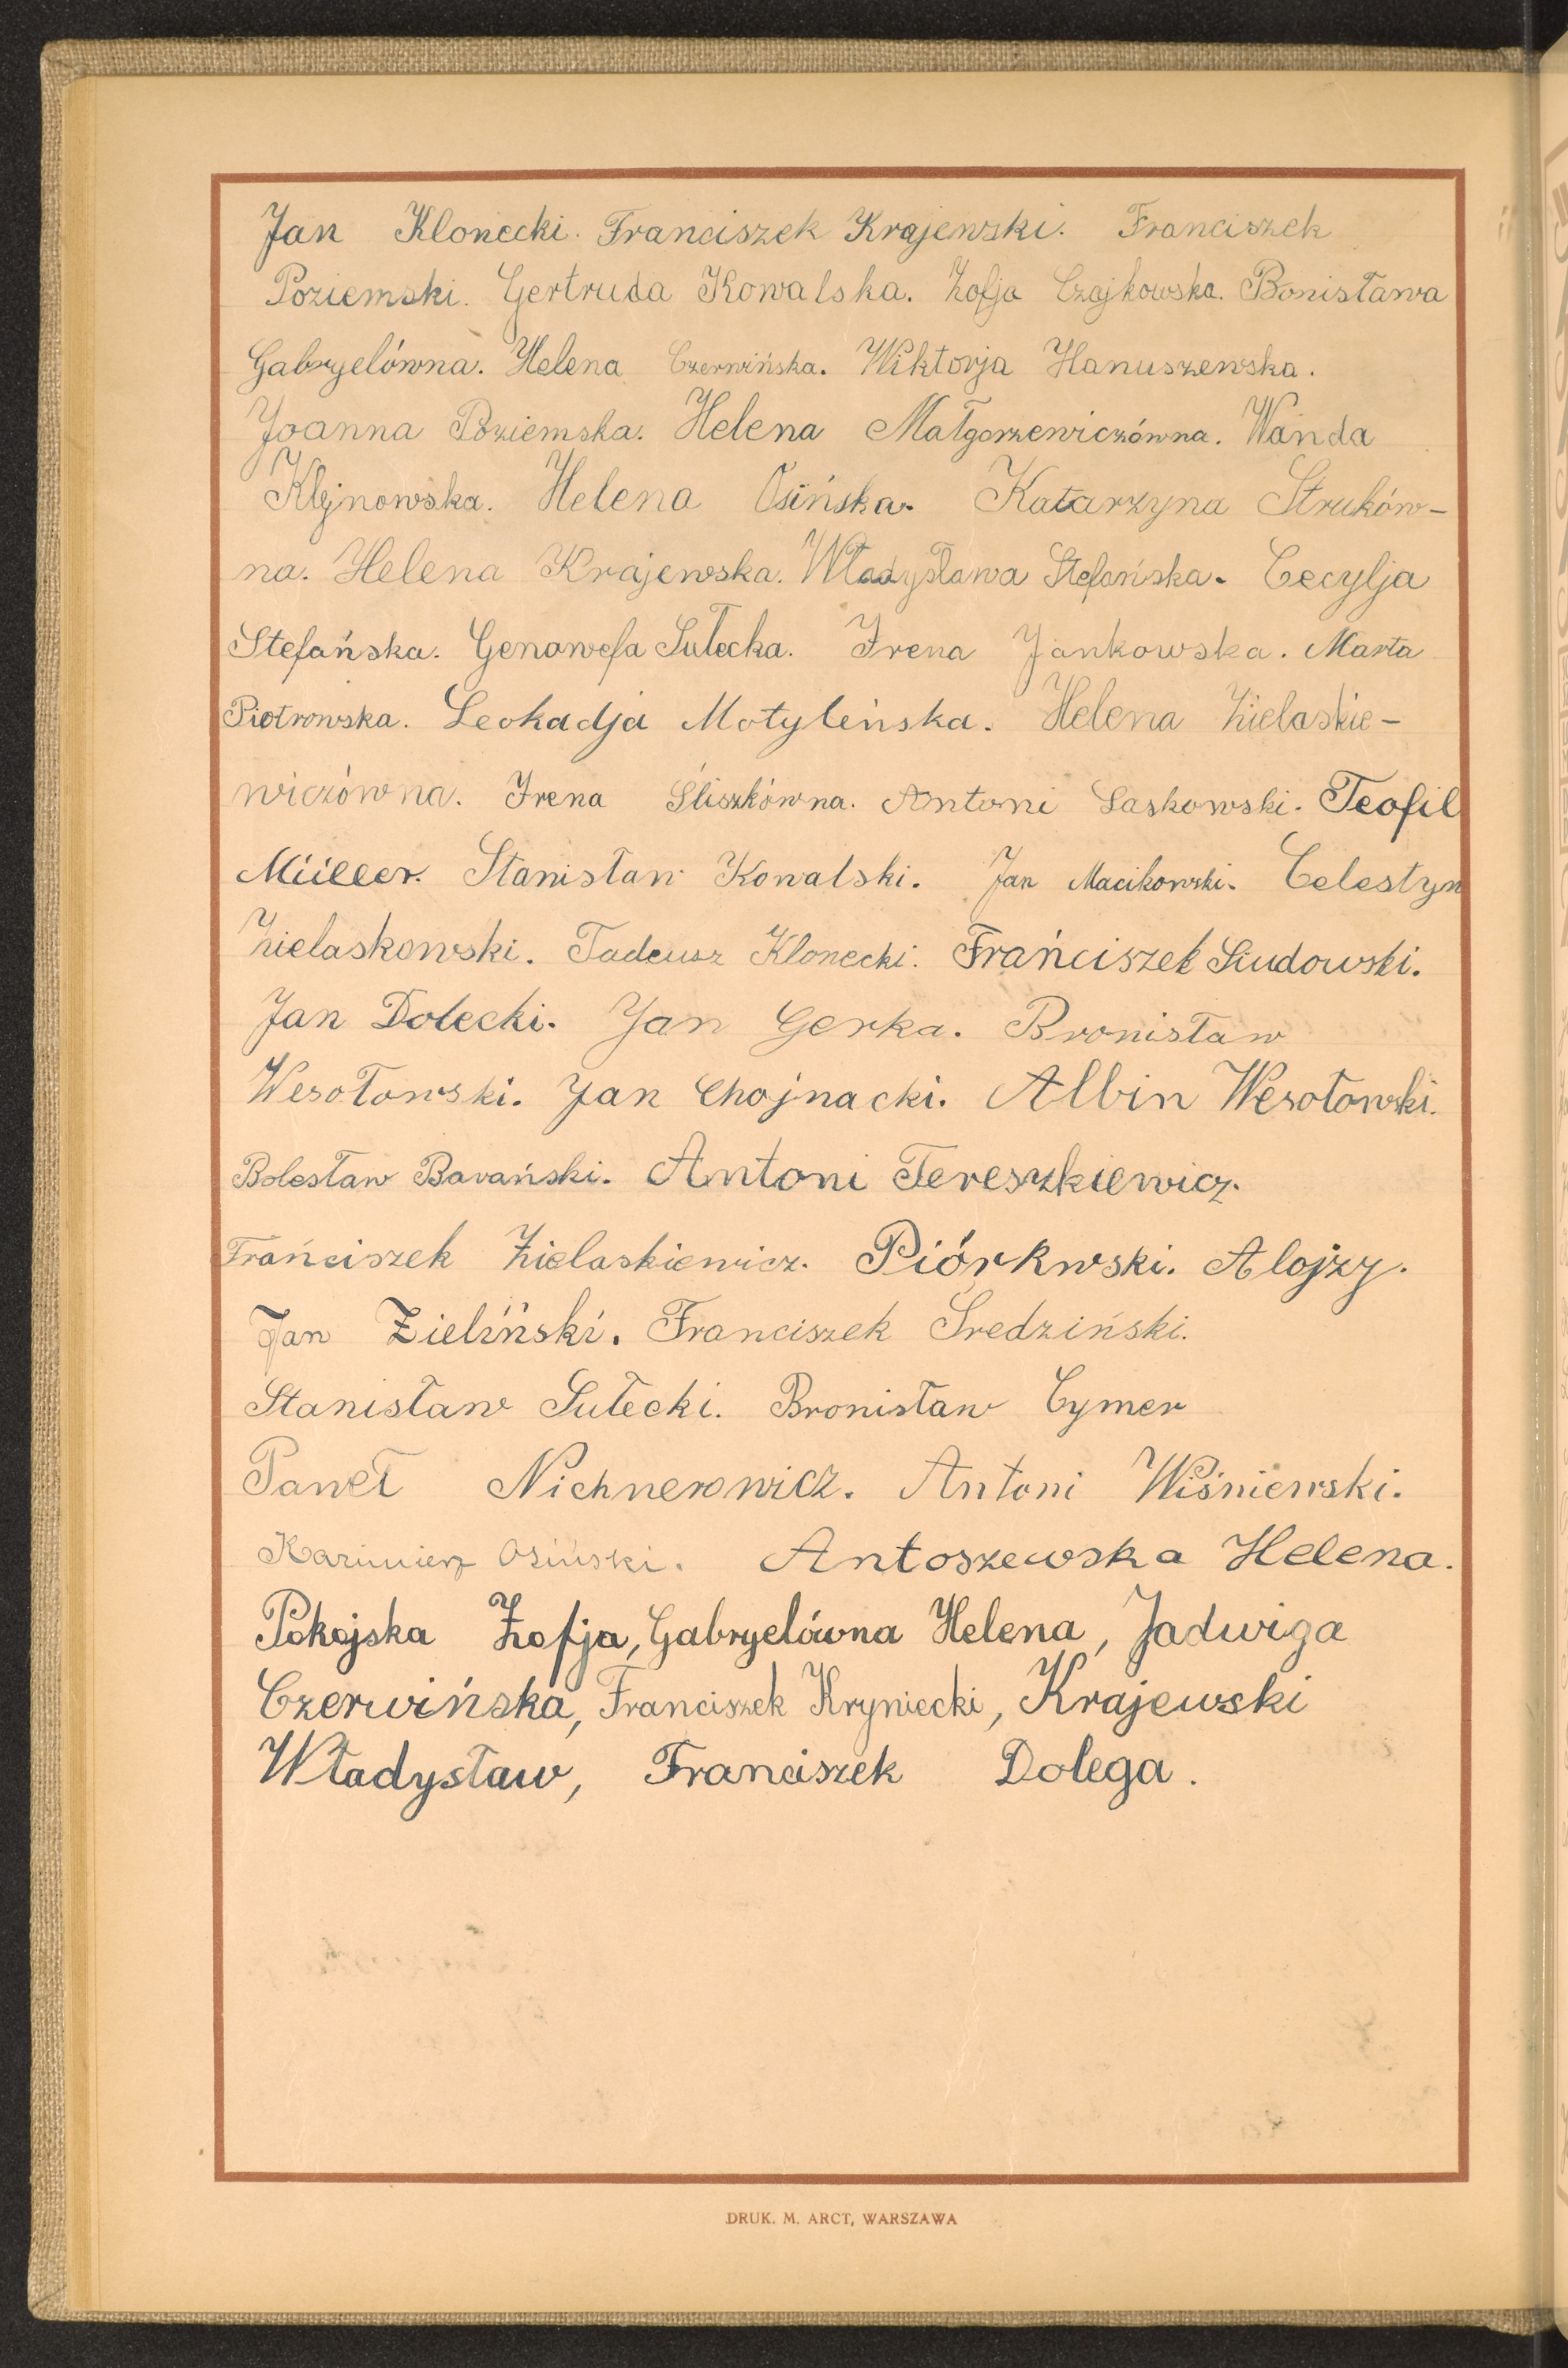 Jan Klonecki. Franciszek Krajewski. Franciszek
Poziemski. Gertruda Kowalska. Zofja Czajkowska. Bonisława
Gabryelówna. Helena Czerwińska. Wiktorja Hanuszewska.
Joanna Poziemska. Helena Małgorzewiczówna. Wanda
Klejnowska. Helena Osińska. Katarzyna Struków-
na. Helena Krajewska. Władysława Stefańska. Cecylja
Stefańska. Genowefa Sułecka. Irena Jankowska. Marta
Piotrowska. Leokadja Motylińska. Helena Zielaskie-
wiczówna. Irena Śliszkówna. Antoni Laskowski. Teofil
Müller. Stanisław Kowalski. Jan Macikowski. Celestyn
Zielaskowski. Tadeusz Klonecki. Frańciszek Siudowski.
Jan Dołecki. Jan Gerka. Bronisław
Wesołowski. Jan Chojnacki. Albin Wesołowski.
Bolesław Barański. Antoni Tereszkiewicz.
Frańciszek Zielaskiewicz. Piórkwski. Alojzy.
Jan Zieliński. Franciszek Średziński.
Stanisław Sułecki. Bronisław Cymer
Paweł Nichnerowicz. Antoni Wiśniewski.
Kazimierz Osiński. Antoszewska Helena.
Pokojska Zofja, Gabryelówna Helena, Jadwiga
Czerwińska, Franciszek Kryniecki, Krajewski
Władysław, Franciszek Dolega.
DRUK. M. ARCT, WARSZAWA